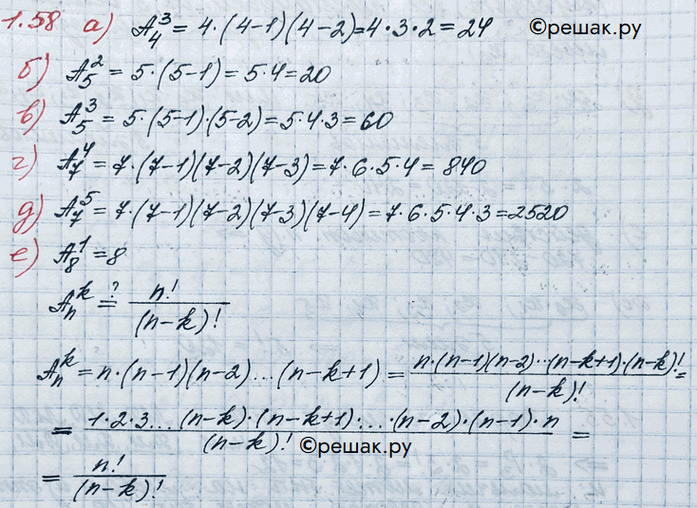 1.58 а) A₄³ = 4·(4-1)(4-2)=4·3·2=24 ©решак.ру
б) A₅² = 5·(5-1)=5·4=20
в) A₅³ = 5·(5-1)·(5-2)=5·4·3=60
г) A₇⁴ = 7·(7-1)(7-2)(7-3)=7·6·5·4=840
д) A₇⁵ = 7·(7-1)(7-2)(7-3)(7-4)=7·6·5·4·3=2520
е) A₈¹ = 8
Aₙᵏ ≟ n!/(n-k)!
Aₙᵏ = n·(n-1)(n-2)...(n-k+1) = n·(n-1)(n-2)...(n-k+1)·(n-k)!/(n-k)! =
= 1·2·3...(n-k)·(n-k+1)...·(n-2)·(n-1)·n/(n-k)! =
©решак.ру
= n!/(n-k)!